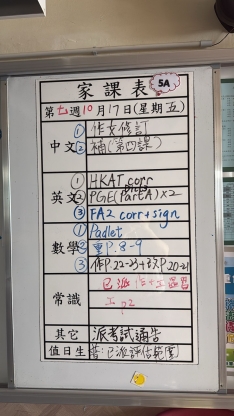 家課表 5A
第七週10月17日(星期五)
中文 ① 作文修訂
② 補(第四課)
英文 ① HKAT corr
② PGE(Part A)×2
③ FA2 corr + sign
數學 ① Padlet
② 重P.8-9
③ 作P.22-23
常識
P2
其它 派考試通告
值日生